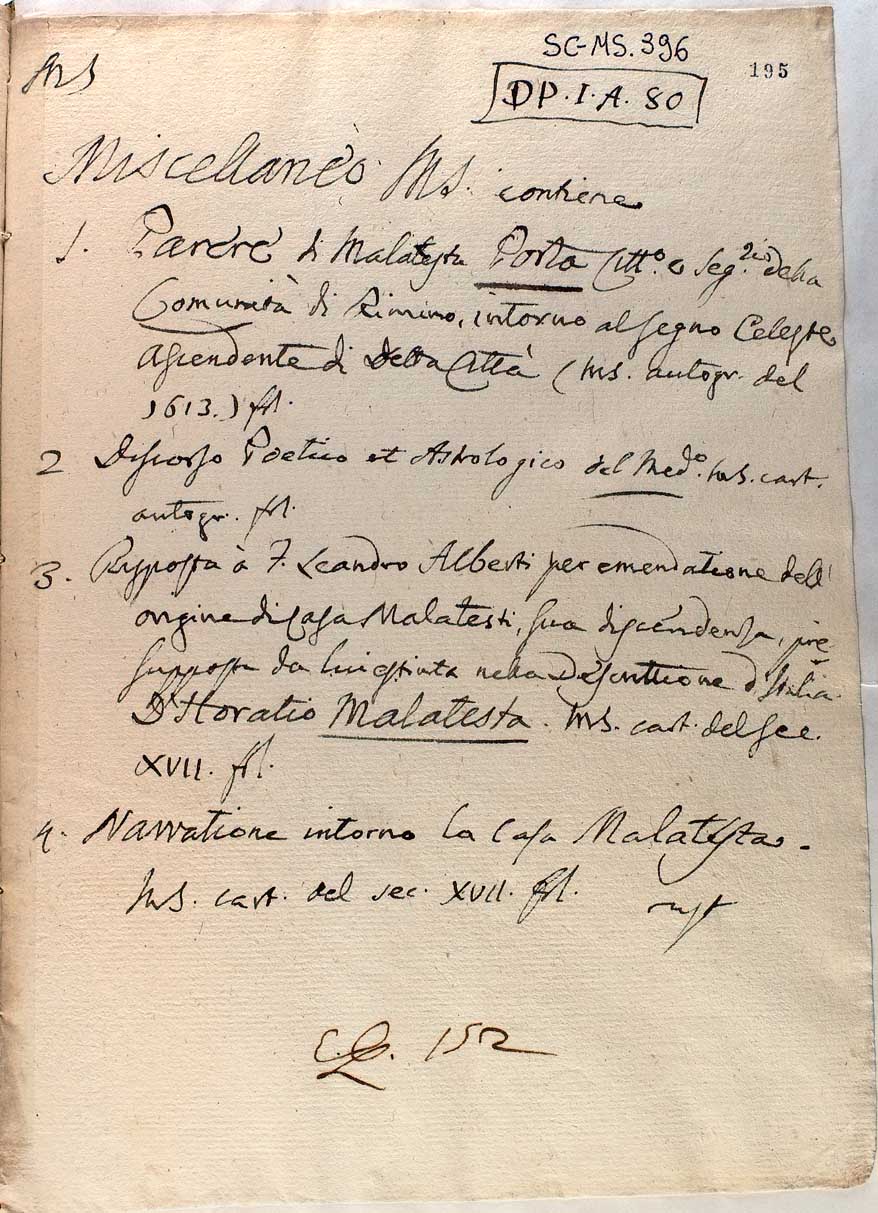 SC-MS. 396
195
MS
DP. I. A. 80
Miscellaneo MS. contiene
1. Parere di Malatesta Porta Citt.º e Seg.rio della
Comunità di Rimino, intorno al segno Celeste
Ascendente di Detta Città (MS. autogr. del
1613.) fol.
2 Discorso Poetico et Astrologico del Med.º MS. cart.
autogr. fol.
3. Risposta à F. Leandro Alberti per emendatione dell'
origine di Casa Malatesti, sua discendenza, pre-
supposta da lui estinta nella Descrittione d'Italia
D'Horatio Malatesta. MS. cart. del sec.
XVII. fol.
4. Narratione intorno la Casa Malatesta.
MS. cart. del sec. XVII. fol.
152